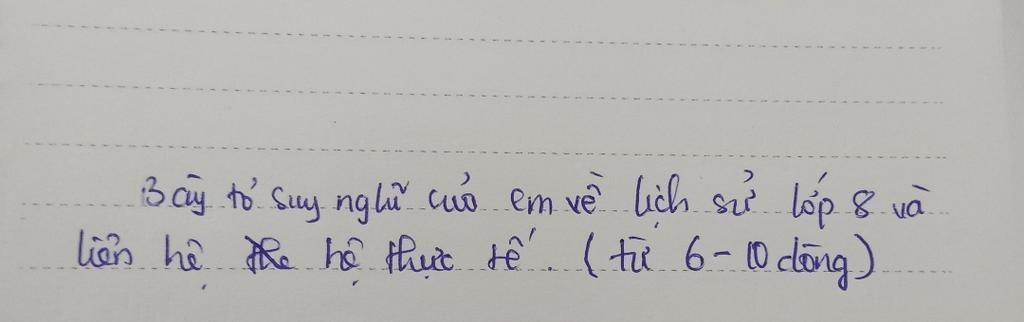 Bày tỏ suy nghĩ của em về lịch sử lớp 8 và
liên hệ hệ thực tế. (từ 6-10 dòng)